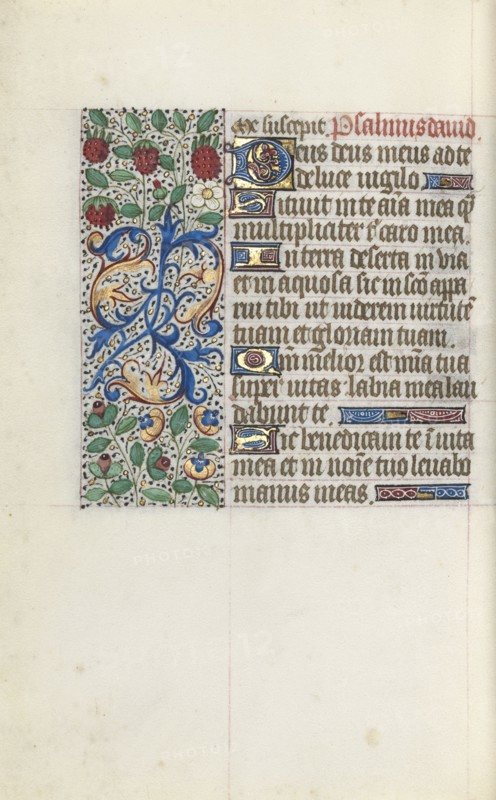 me suscepit. Psalmus david.
Deus deus meus ad te
de luce vigilo
Sitivit in te aīa mea q̄
multipliciter t̄ caro mea.
In terra deserta in via
et in aquosa sic in sc̄o appa
rui tibi ut viderem virtutē
tuam et gloriam tuam.
Qm̄ melior est mīa tua
super vitas labia mea lau
dabunt te.
Sic benedicam te ī vita
mea et in noīe tuo levabo
manus meas.